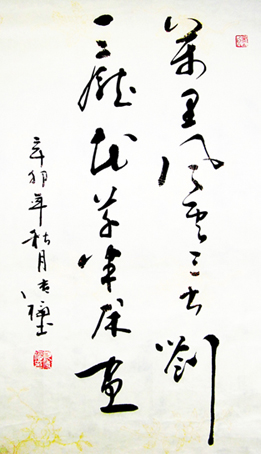 萬里風雲三尺劍
一庭花草半床書
辛卯年秋月